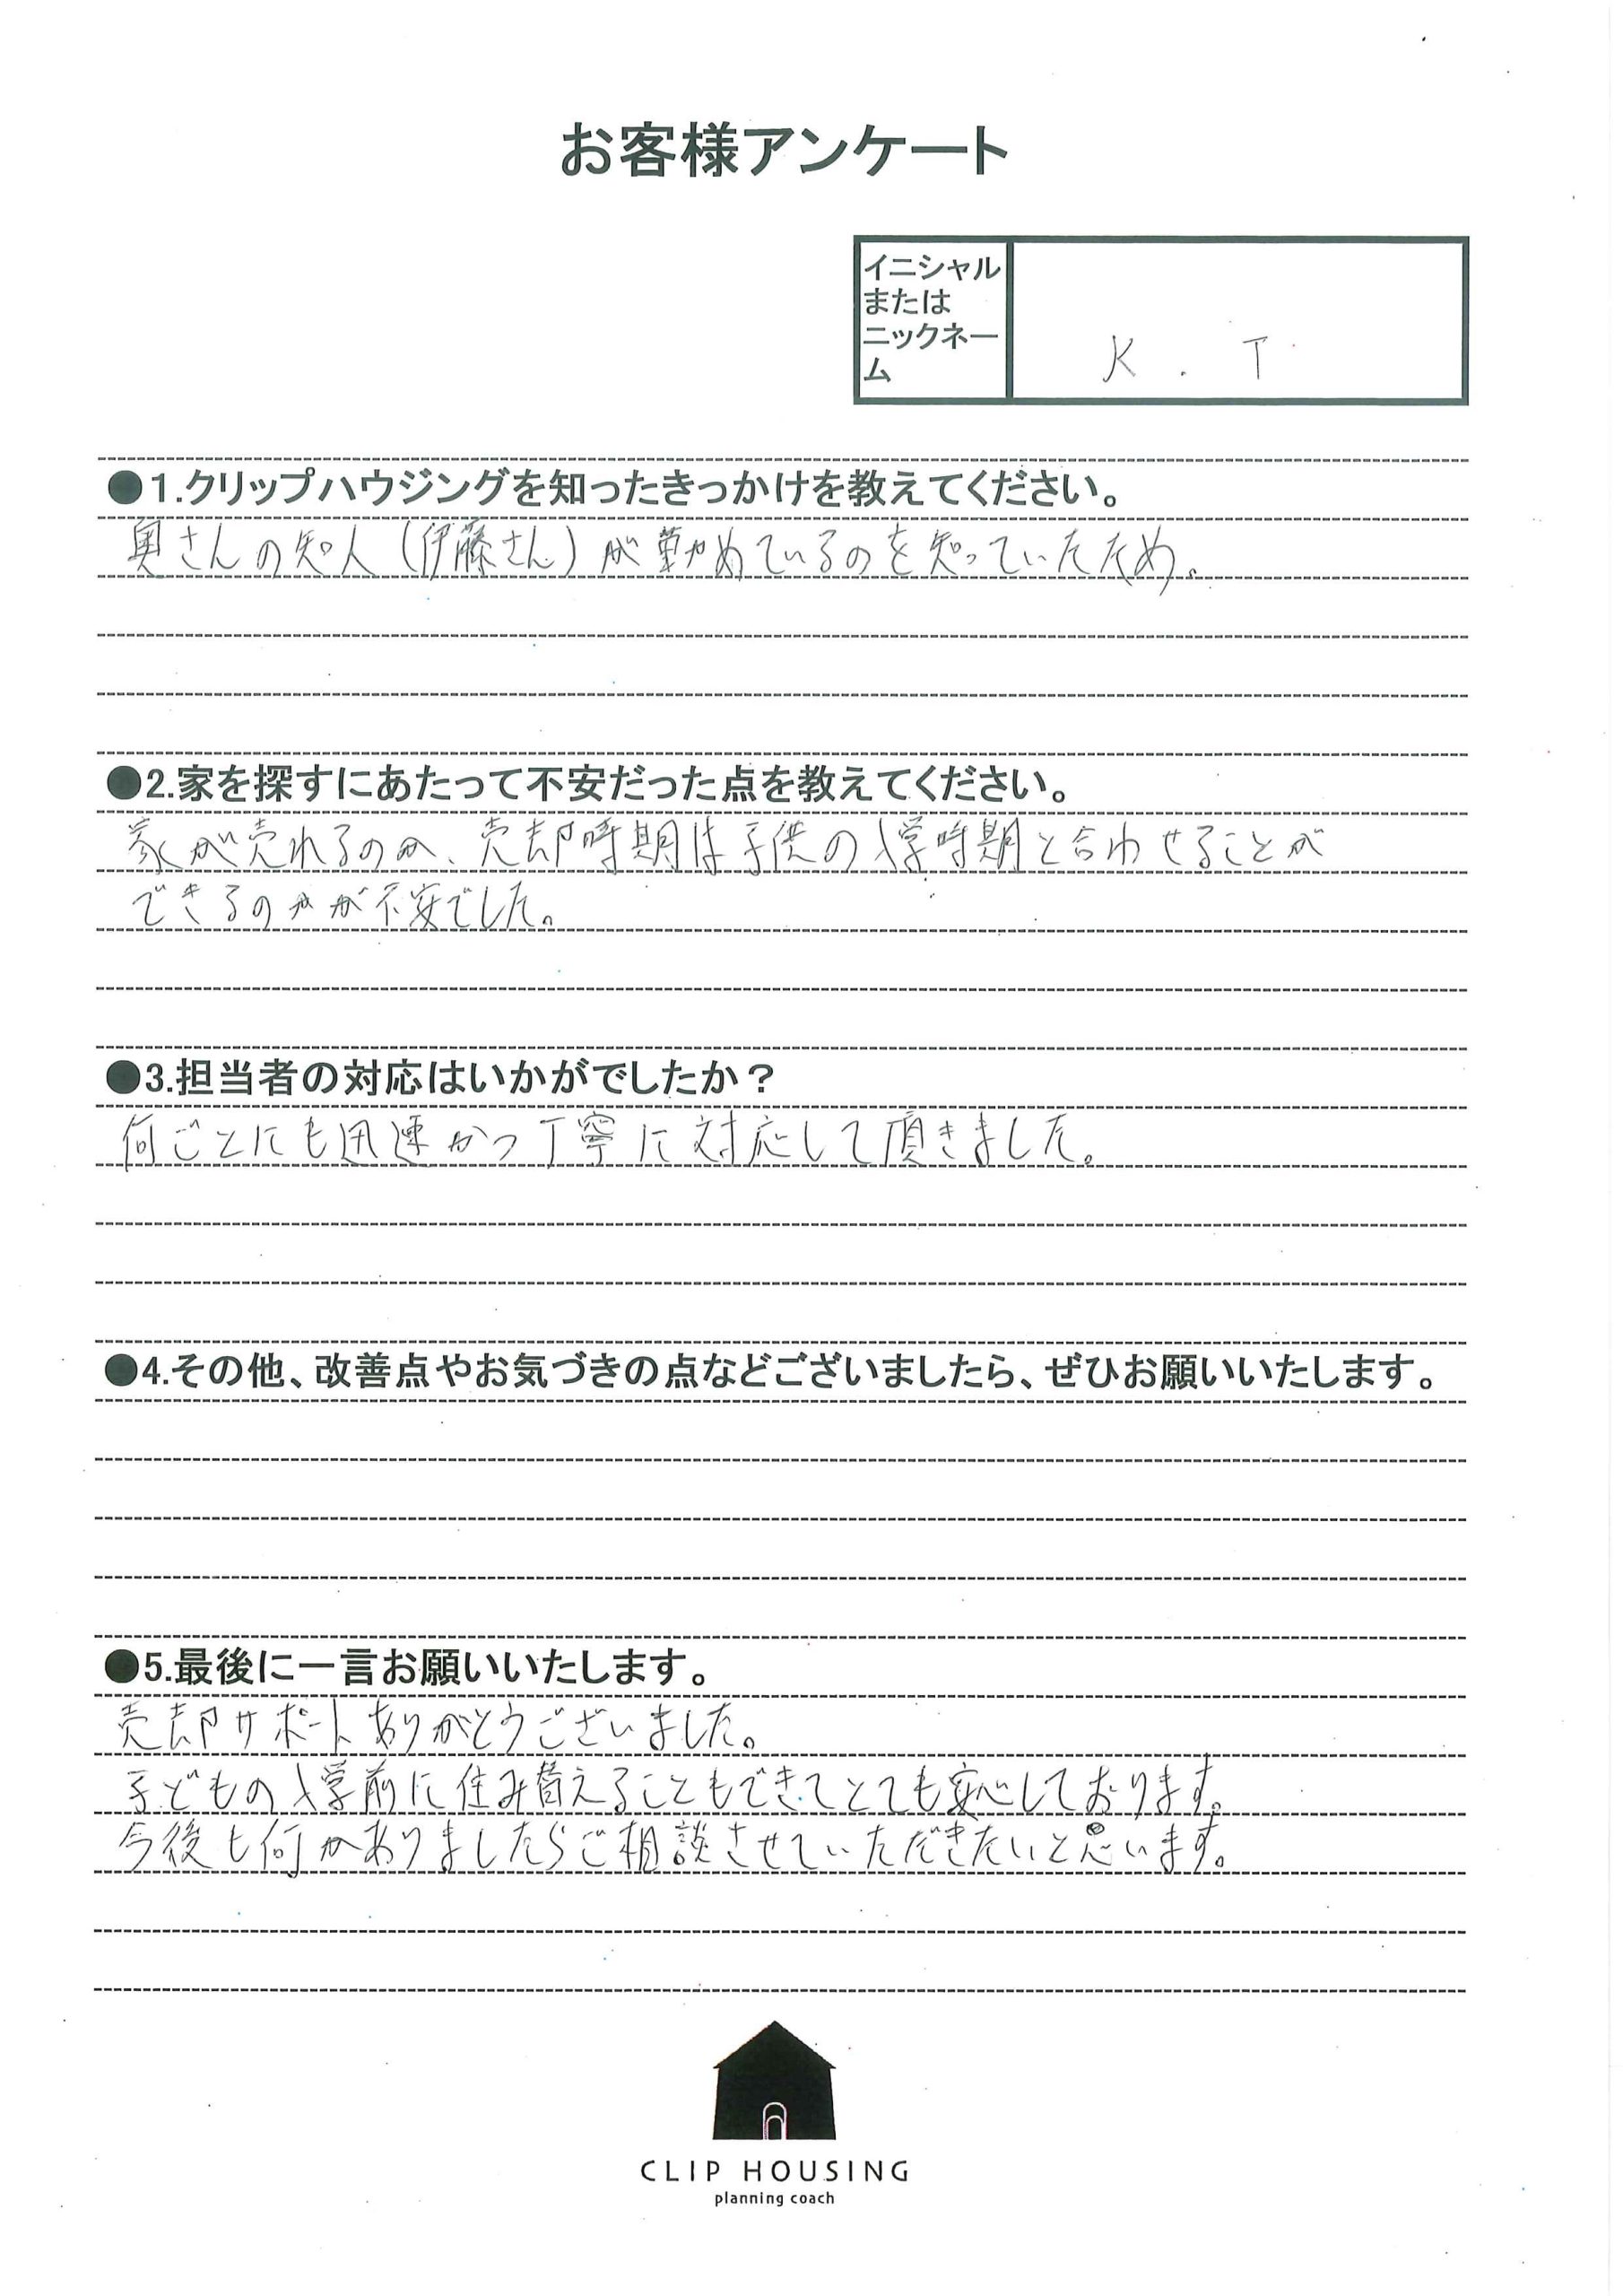 お客様アンケート
イニシャル
または
ニックネー
ム
K.T
●1.クリップハウジングを知ったきっかけを教えてください。
奥さんの知人(伊藤さん)が勤めているのを知っていたため。
●2.家を探すにあたって不安だった点を教えてください。
家が売れるのか、売却時期は子供の入学時期と合わせることが
できるのかが不安でした。
●3.担当者の対応はいかがでしたか?
何ごとにも迅速かつ丁寧に対応して頂きました。
●4.その他、改善点やお気づきの点などございましたら、ぜひお願いいたします。
●5.最後に一言お願いいたします。
売却サポートありがとうございました。
子どもの入学前に住み替えることもできてとても安心しております。
今後も何かありましたらご相談させていただきたいと思います。
CLIP HOUSING
planning coach